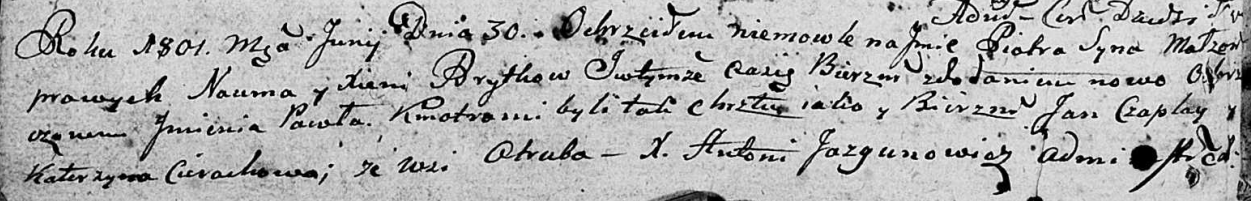 Admi- Cer. Dziedzi
Roku 1801. Mca Junij Dnia 30. Ochrzciłem niemowle na Jmie Piotra Syna Małżon
prawych Nauma y Xieni Brytkow Jwtymże czasie Bierzm: zdodaniem nowo Ochrz
czonemu Jmienia Pawła. Kmotrami byli tak chrztu iako y Bierzm: Jan Czaplay y
Katerzyna Cierachowa; że wsi Otruba – X. Antoni Jazgunowicz Admi